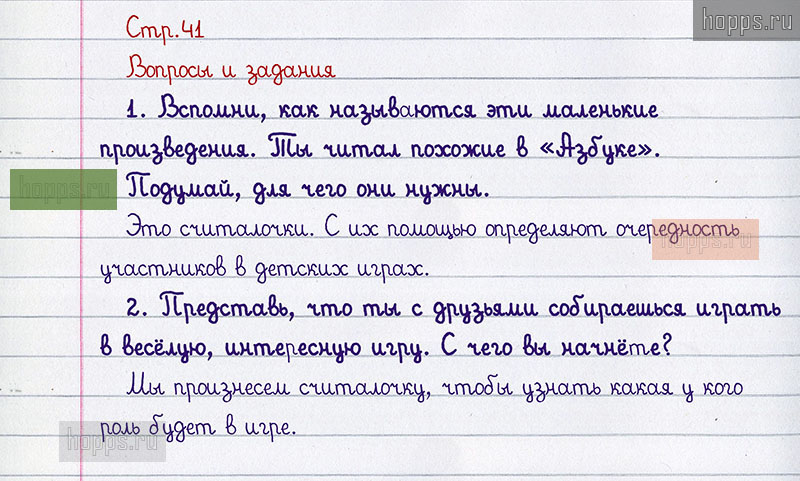 hopps.ru
Стр.41
Вопросы и задания
1. Вспомни, как называются эти маленькие
произведения. Ты читал похожие в «Азбуке».
hopps.ru
Подумай, для чего они нужны.
Это считалочки. С их помощью определяют очередность
hopps.ru
участников в детских играх.
2. Представь, что ты с друзьями собираешься играть
в весёлую, интересную игру. С чего вы начнёте?
Мы произнесем считалочку, чтобы узнать какая у кого
роль будет в игре.
hopps.ru